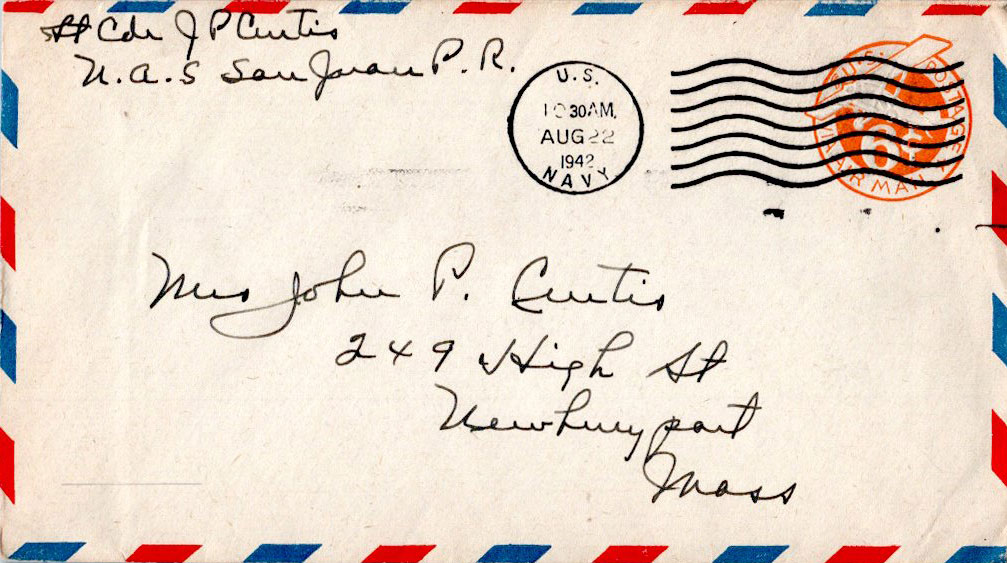 Lt Cdr J P Curtis
N.A.S San Juan P.R.
U.S.
10 30 AM,
AUG 22
1942
NAVY
U.S. POSTAGE
6¢
VIA AIR MAIL
Mrs John P. Curtis
249 High St
Newburyport
Mass